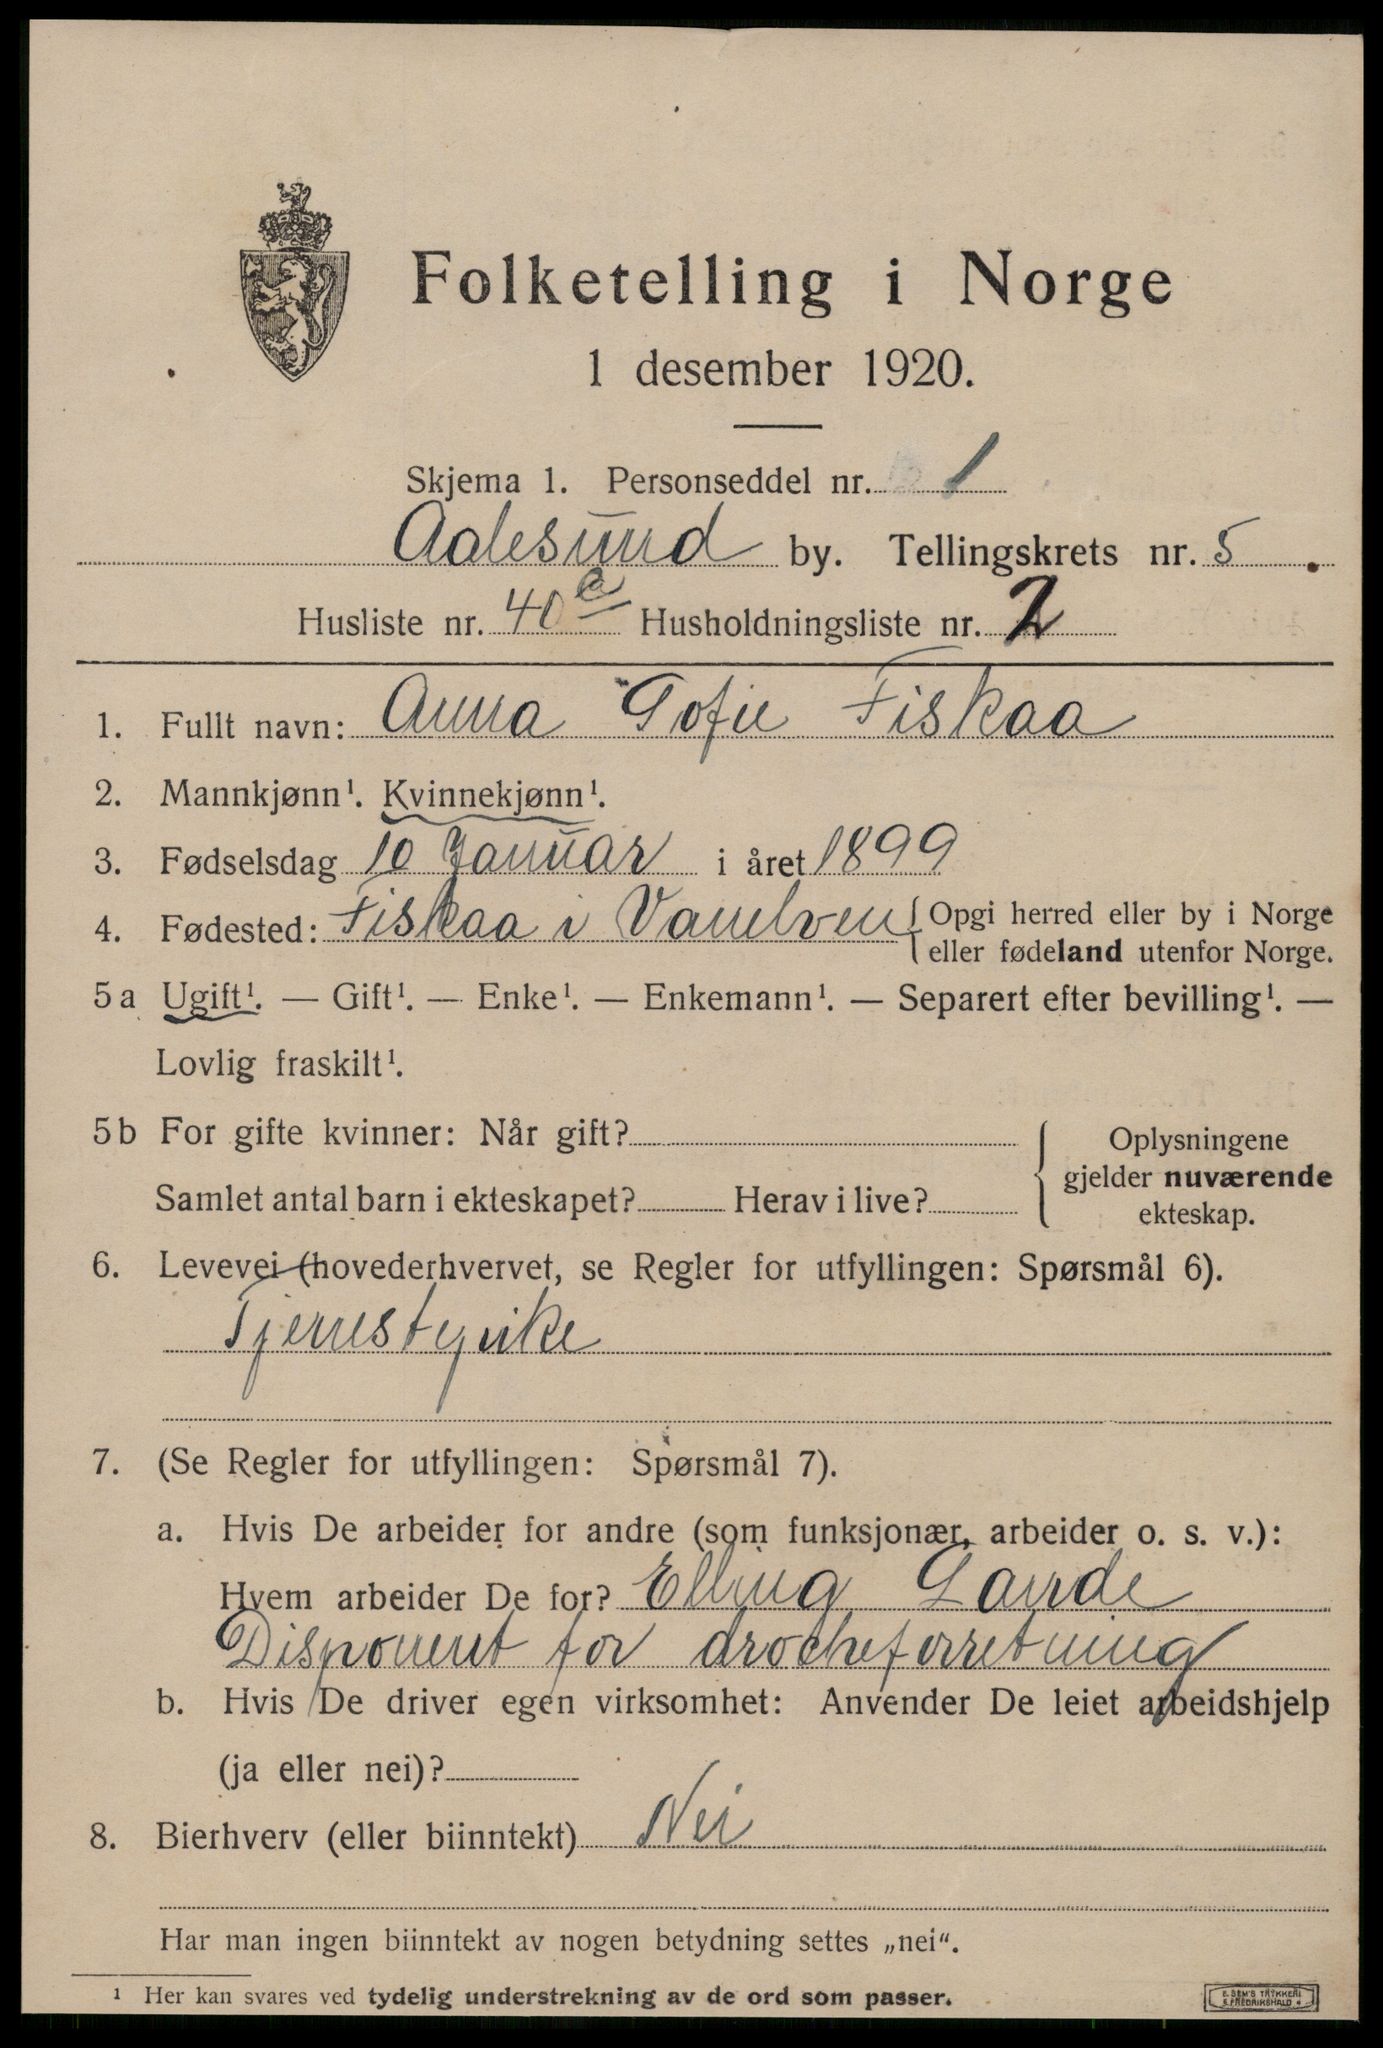 Folketelling i Norge
1 desember 1920.
Skjema 1. Personseddel nr. 1
Aalesund by. Tellingskrets nr. 5
Husliste nr. 40a Husholdningsliste nr. 2
1. Fullt navn: Anna Sofie Fiskaa
2. Mannkjønn¹. Kvinnekjønn¹.
3. Fødselsdag 10 Januar i året 1899
4. Fødested: Fiskaa i Vanelven { Opgi herred eller by i Norge
eller fødeland utenfor Norge.
5a Ugift¹. — Gift¹. — Enke¹. — Enkemann¹. — Separert efter bevilling¹. —
Lovlig fraskilt¹.
5b For gifte kvinner: Når gift?
Samlet antal barn i ekteskapet? Herav i live?
Oplysningene
gjelder nuværende
ekteskap.
6. Levevei (hovederhvervet, se Regler for utfyllingen: Spørsmål 6).
Tjenestepike
7. (Se Regler for utfyllingen: Spørsmål 7).
a. Hvis De arbeider for andre (som funksjonær, arbeider o. s. v.):
Hvem arbeider De for? Elling Lande
Disponent for drocheforretning
b. Hvis De driver egen virksomhet: Anvender De leiet arbeidshjelp
(ja eller nei)?
8. Bierhverv (eller biinntekt) Nei
Har man ingen biinntekt av nogen betydning settes „nei“.
¹ Her kan svares ved tydelig understrekning av de ord som passer.
E. SEM'S TRYKKERI
FREDRIKSHALD